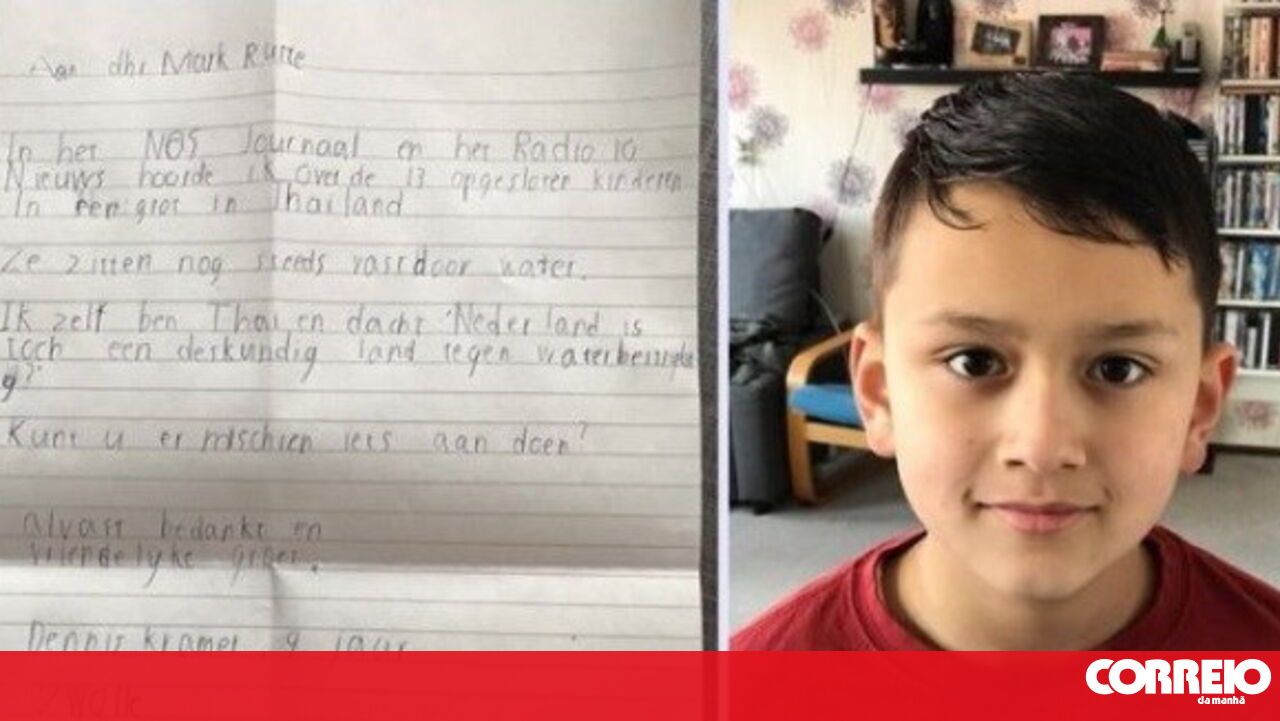 Aan dhr Mark Rutte
In het NOS Journaal en het Radio 10
Nieuws hoorde ik over de 13 opgesloten kinderen
In een grot in Thailand
Ze zitten nog steeds vast door water.
Ik zelf ben Thai en dacht 'Nederland is
toch een deskundig land tegen waterbestrijdin
g?'
Kunt u er misschien iets aan doen?
alvast bedankt en
vriendelyke groet.
Dennis Kramer 9 jaar
Zwolle
CORREIO
da manhã